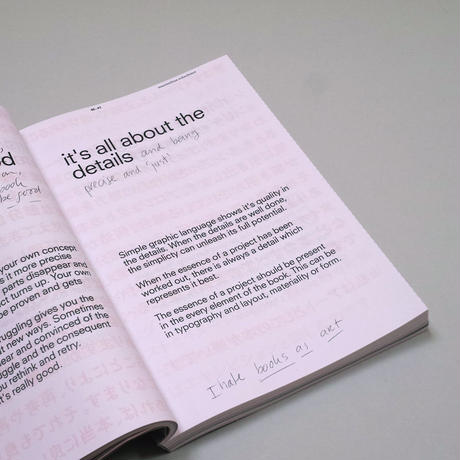 od
book
be good
your own concept
s it more precise
parts disappear and
ct turns up. Your own
be proven and gets
ruggling gives you the
t few ways. Sometimes
ear and convinced of the
ggle and the consequent
you rethink and retry.
t's really good.
it's all about the
details and being
precise and 'just'
Simple graphic language shows it's quality in
the details. When the details are well done,
the simplicty can unleash its full potential.
When the essence of a project has been
worked out, there is always a detail which
represents it best.
The essence of a project should be present
in the every element of the book. This can be
in typography and layout, materiality or form.
I hate books as art